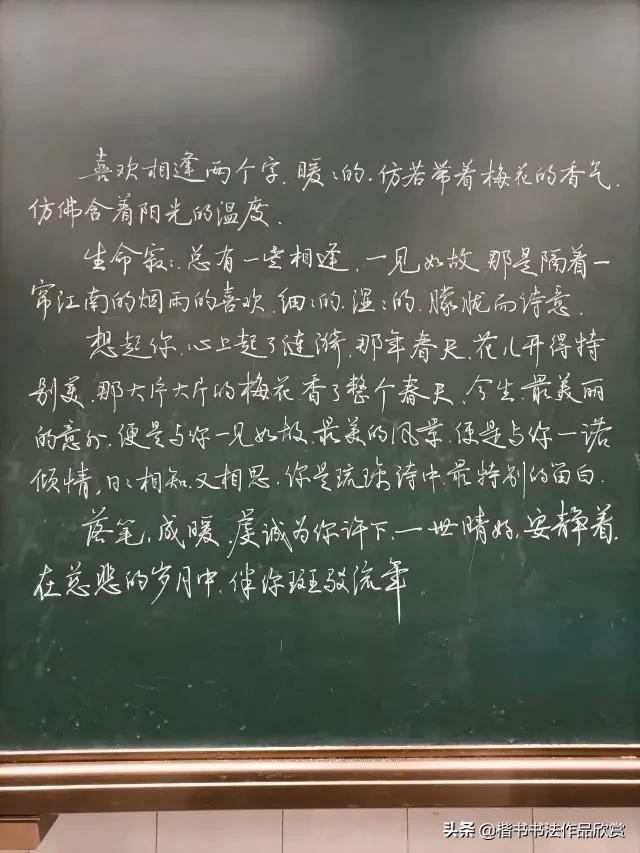 喜欢相逢两个字.暖:的.仿若带着梅花的香气.
仿佛含着阳光的温度.
生命寂:.总有一些相逢.一见如故.那是隔着一
帘江南的烟雨的喜欢.细:的.湿:的.朦胧而诗意.
想起你.心上起了涟漪.那年春天.花儿开得特
别美.那大片大片的梅花.香了整个春天.今生.最美丽
的意外.便是与你一见如故.最美的风景.便是与你一诺
倾情,日:相知.又相思.你是琉璃诗中.最特别的留白.
落笔,成暖.虔诚为你许下.一世晴好.安静着.
在慈悲的岁月中.伴你斑驳流年
头条@楷书书法作品欣赏